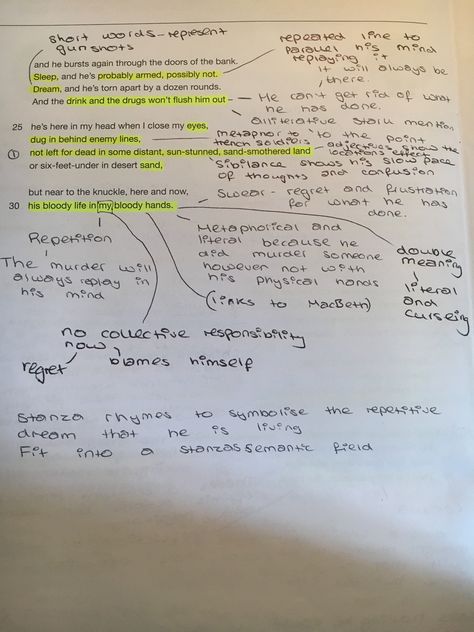 short words - represent
gunshots
repeated line to
parallel his mind
replaying it
It will always be
there.
and he bursts again through the doors of the bank.
Sleep, and he's probably armed, possibly not.
Dream, and he's torn apart by a dozen rounds.
And the drink and the drugs won't flush him out -
He can't get rid of what
he has done.
alliterative stark mention
25 he's here in my head when I close my eyes,
dug in behind enemy lines,
metaphor to
trench soldiers
'to the point
adjectives show the
locations effect
① not left for dead in some distant, sun-stunned, sand-smothered land
or six-feet-under in desert sand,
'Sibilance shows his slow pace
of thoughts and confusion
but near to the knuckle, here and now,
30 his bloody life in my bloody hands.
Swear - regret and frustration
for what he has
done.
Repetition
The murder will
always replay in
his mind
Metaphorical and
literal because he
did murder someone
however not with
his physical hands
(links to MacBeth)
double
meaning
literal
and
curseing
no collective responsibility
now
regret
blames himself
Stanza rhymes to symbolise the repetitive
dream that he is living
Fit into a stanzas semantic field